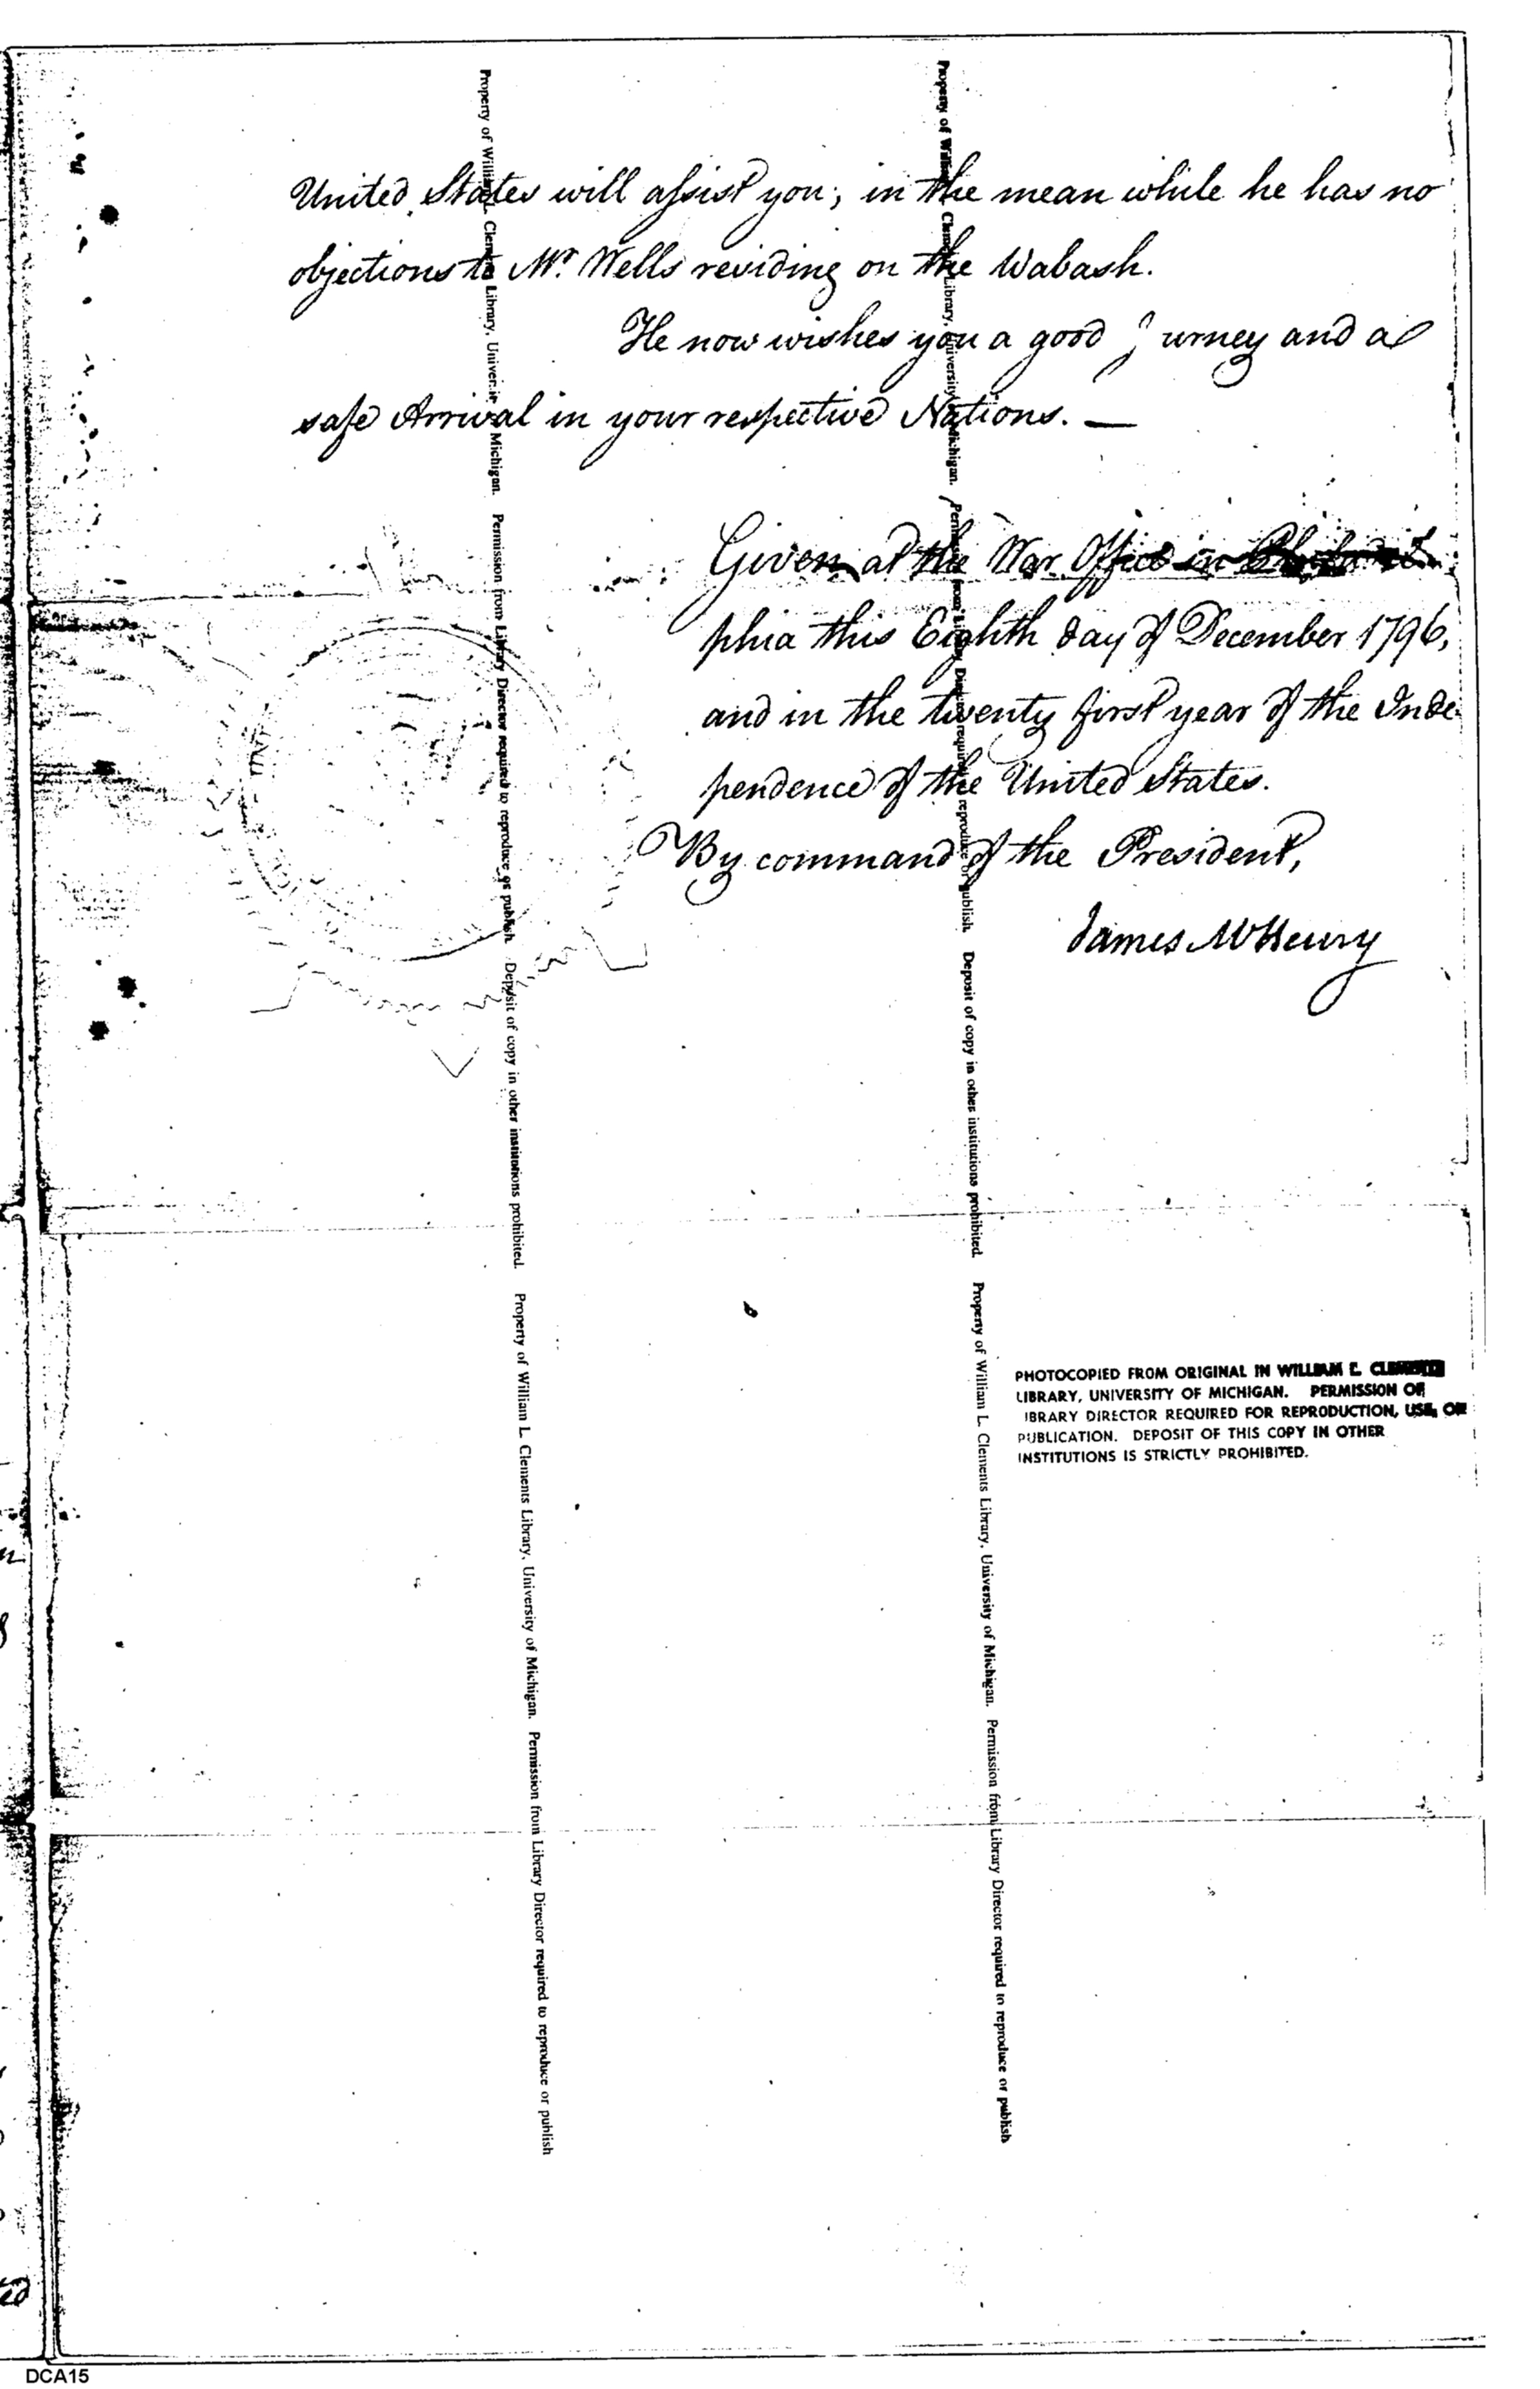 United States will assist you; in the mean while he has no
objections to Mr. Wells residing on the Wabash.
He now wishes you a good J urney and a
safe Arrival in your respective Nations. —
Given at the War Office in
phia this Eighth day of December 1796,
and in the twenty first year of the Inde
pendence of the United States.
By command of the President,
James McHenry
Property of William L. Clements Library, University of Michigan. Permission from Library Director required to reproduce or publish. Deposit of copy in other institutions prohibited. Property of William L. Clements Library, University of Michigan. Permission from Library Director required to reproduce or publish
Property of William L. Clements Library, University of Michigan. Permission from Library Director required to reproduce or publish. Deposit of copy in other institutions prohibited. Property of William L. Clements Library, University of Michigan. Permission from Library Director required to reproduce or publish
PHOTOCOPIED FROM ORIGINAL IN WILLIAM L. CLEMENTS
LIBRARY, UNIVERSITY OF MICHIGAN. PERMISSION OF
IBRARY DIRECTOR REQUIRED FOR REPRODUCTION, USE, OR
PUBLICATION. DEPOSIT OF THIS COPY IN OTHER
INSTITUTIONS IS STRICTLY PROHIBITED.
DCA15